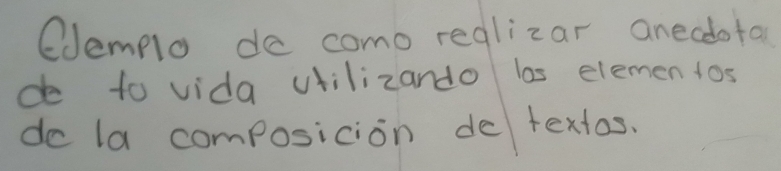 Ejemplo de como realizar anecdota
de tu vida utilizando los elementos
de la composición de textos.